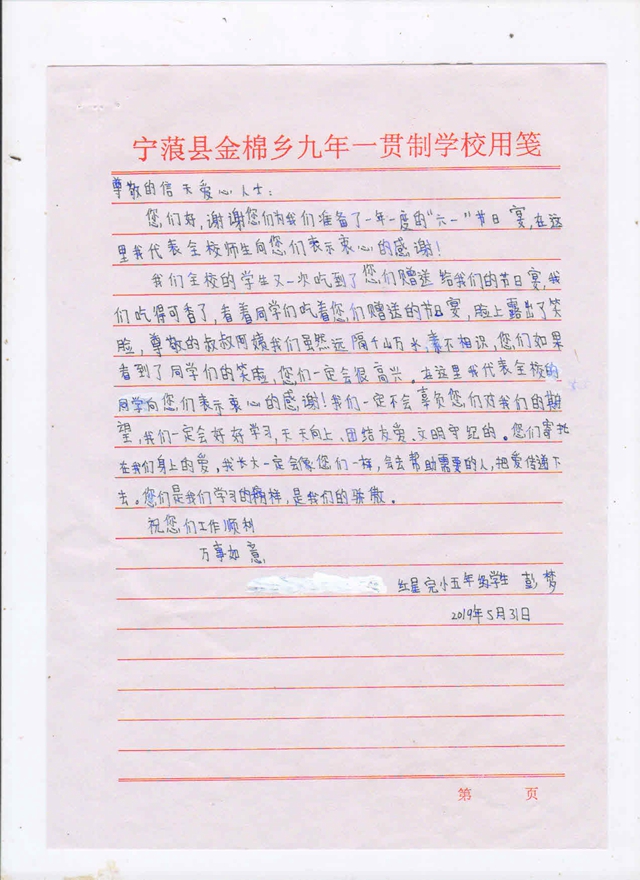 宁蒗县金棉乡九年一贯制学校用笺
尊敬的信天爱心人士：
您们好，谢谢您们为我们准备了一年一度的“六一”节日宴，在这
里我代表全校师生向您们表示衷心的感谢！
我们全校的学生又一次吃到了您们赠送给我们的节日宴，我
们吃得可香了，看着同学们吃着您们赠送的节日宴，脸上露出了笑
脸，尊敬的叔叔阿姨我们虽然远隔千山万水，素不相识，您们如果
看到了同学们的笑脸，您们一定会很高兴。在这里我代表全校的
同学向您们表示衷心的感谢！我们一定不会辜负您们对我们的期
望，我们一定会好好学习，天天向上、团结友爱、文明守纪的。您们寄托
在我们身上的爱，我长大一定会像您们一样，会去帮助需要的人，把爱传递下
去。您们是我们学习的榜样，是我们的骄傲。
祝您们工作顺利
万事如意
红星完小五年级学生 彭梦
2019年5月31日
第 页